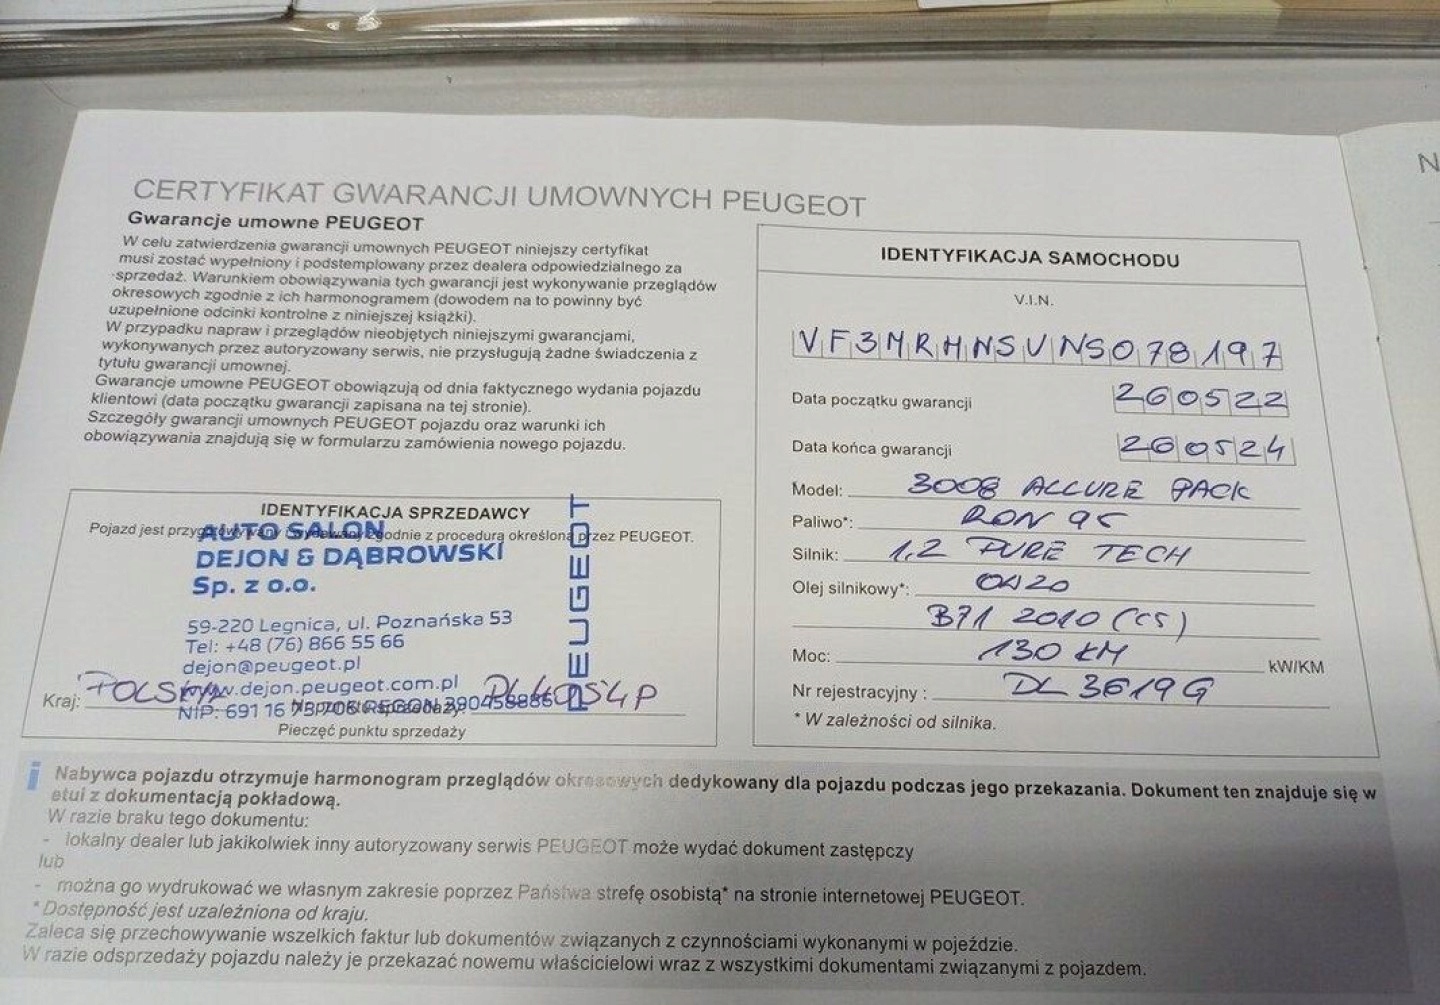 CERTYFIKAT GWARANCJI UMOWNYCH PEUGEOT
Gwarancje umowne PEUGEOT
W celu zatwierdzenia gwarancji umownych PEUGEOT niniejszy certyfikat
musi zostać wypełniony i podstemplowany przez dealera odpowiedzialnego za
sprzedaż. Warunkiem obowiązywania tych gwarancji jest wykonywanie przeglądów
okresowych zgodnie z ich harmonogramem (dowodem na to powinny być
uzupełnione odcinki kontrolne z niniejszej książki).
W przypadku napraw i przeglądów nieobjętych niniejszymi gwarancjami,
wykonywanych przez autoryzowany serwis, nie przysługują żadne świadczenia z
tytułu gwarancji umownej.
Gwarancje umowne PEUGEOT obowiązują od dnia faktycznego wydania pojazdu
klientowi (data początku gwarancji zapisana na tej stronie).
Szczegóły gwarancji umownych PEUGEOT pojazdu oraz warunki ich
obowiązywania znajdują się w formularzu zamówienia nowego pojazdu.
IDENTYFIKACJA SPRZEDAWCY
Pojazd jest przygotowywany i wydawany zgodnie z procedurą określoną przez PEUGEOT.
AUTO SALON
DEJON & DĄBROWSKI
Sp. z o.o.
59-220 Legnica, ul. Poznańska 53
Tel: +48 (76) 866 55 66
dejon@peugeot.pl
www.dejon.peugeot.com.pl
NIP: 691 16 73 706 REGON 390458886
PEUGEOT
Kraj: POLSKA
Pieczęć punktu sprzedaży
IDENTYFIKACJA SAMOCHODU
V.I.N.
VF3MRHNSUNS078197
Data początku gwarancji 260522
Data końca gwarancji 260524
Model: 3008 ALLURE PACK
Paliwo*: RON 95
Silnik: 1,2 PURE TECH
Olej silnikowy*: 0W20
B71 2010 (C5)
Moc: 130 KM kW/KM
Nr rejestracyjny : DL3619G
* W zależności od silnika.
i
Nabywca pojazdu otrzymuje harmonogram przeglądów okresowych dedykowany dla pojazdu podczas jego przekazania. Dokument ten znajduje się w
etui z dokumentacją pokładową.
W razie braku tego dokumentu:
- lokalny dealer lub jakikolwiek inny autoryzowany serwis PEUGEOT może wydać dokument zastępczy
lub
- można go wydrukować we własnym zakresie poprzez Państwa strefę osobistą* na stronie internetowej PEUGEOT.
* Dostępność jest uzależniona od kraju.
Zaleca się przechowywanie wszelkich faktur lub dokumentów związanych z czynnościami wykonanymi w pojeździe.
W razie odsprzedaży pojazdu należy je przekazać nowemu właścicielowi wraz z wszystkimi dokumentami związanymi z pojazdem.
N